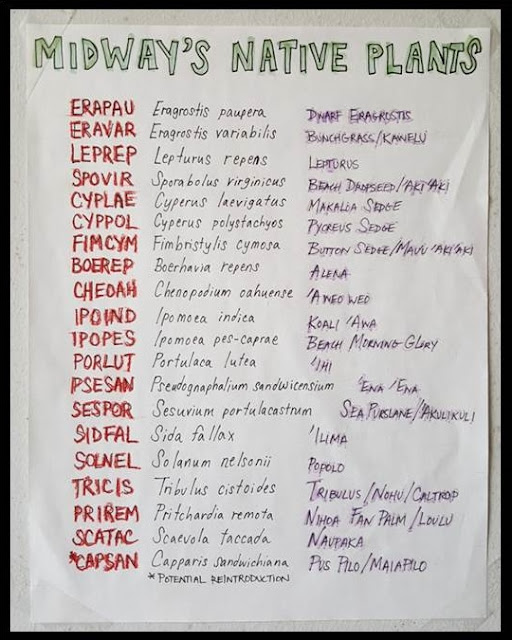 MIDWAY'S NATIVE PLANTS
ERAPAU Eragrostis paupera DWARF ERAGROSTIS
ERAVAR Eragrostis variabilis BUNCHGRASS/KAWELU
LEPREP Lepturus repens LEPTURUS
SPOVIR Sporabolus virginicus BEACH DROPSEED/'AKI'AKI
CYPLAE Cyperus laevigatus MAKALOA SEDGE
CYPPOL Cyperus polystachyos PYCREUS SEDGE
FIMCYM Fimbristylis cymosa BUTTON SEDGE/MAU'U 'AKI'AKI
BOEREP Boerhavia repens ALENA
CHEOAH Chenopodium oahuense 'AWEO WEO
IPOIND Ipomoea indica KOALI 'AWA
IPOPES Ipomoea pes-caprae BEACH MORNING GLORY
PORLUT Portulaca lutea 'IHI
PSESAN Pseudognaphalium sandwicensium 'ENA 'ENA
SESPOR Sesuvium portulacastrum SEA PURSLANE/'AKULIKULI
SIDFAL Sida fallax 'ILIMA
SOLNEL Solanum nelsonii POPOLO
TRICIS Tribulus cistoides TRIBULUS/NOHU/CALTROP
PRIREM Pritchardia remota NIHOA FAN PALM/LOULU
SCATAC Scaevola taccada NAUPAKA
*CAPSAN Capparis sandwichiana PUS PILO/MAIAPILO
*POTENTIAL REINTRODUCTION